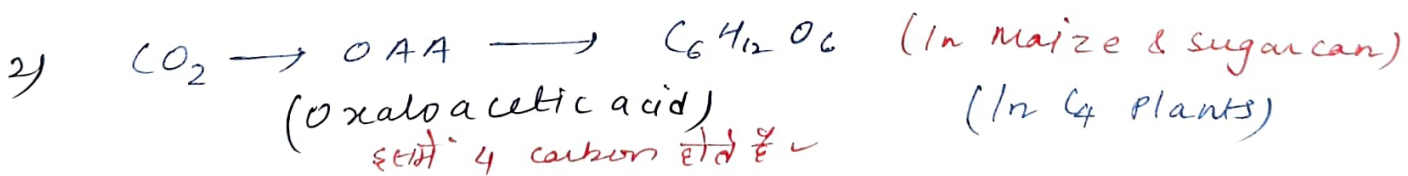 2) CO₂ → OAA → C₆H₁₂O₆ (In Maize & sugarcan)
(Oxaloacetic acid) (In C₄ Plants)
इसमे 4 carbon होते हैं